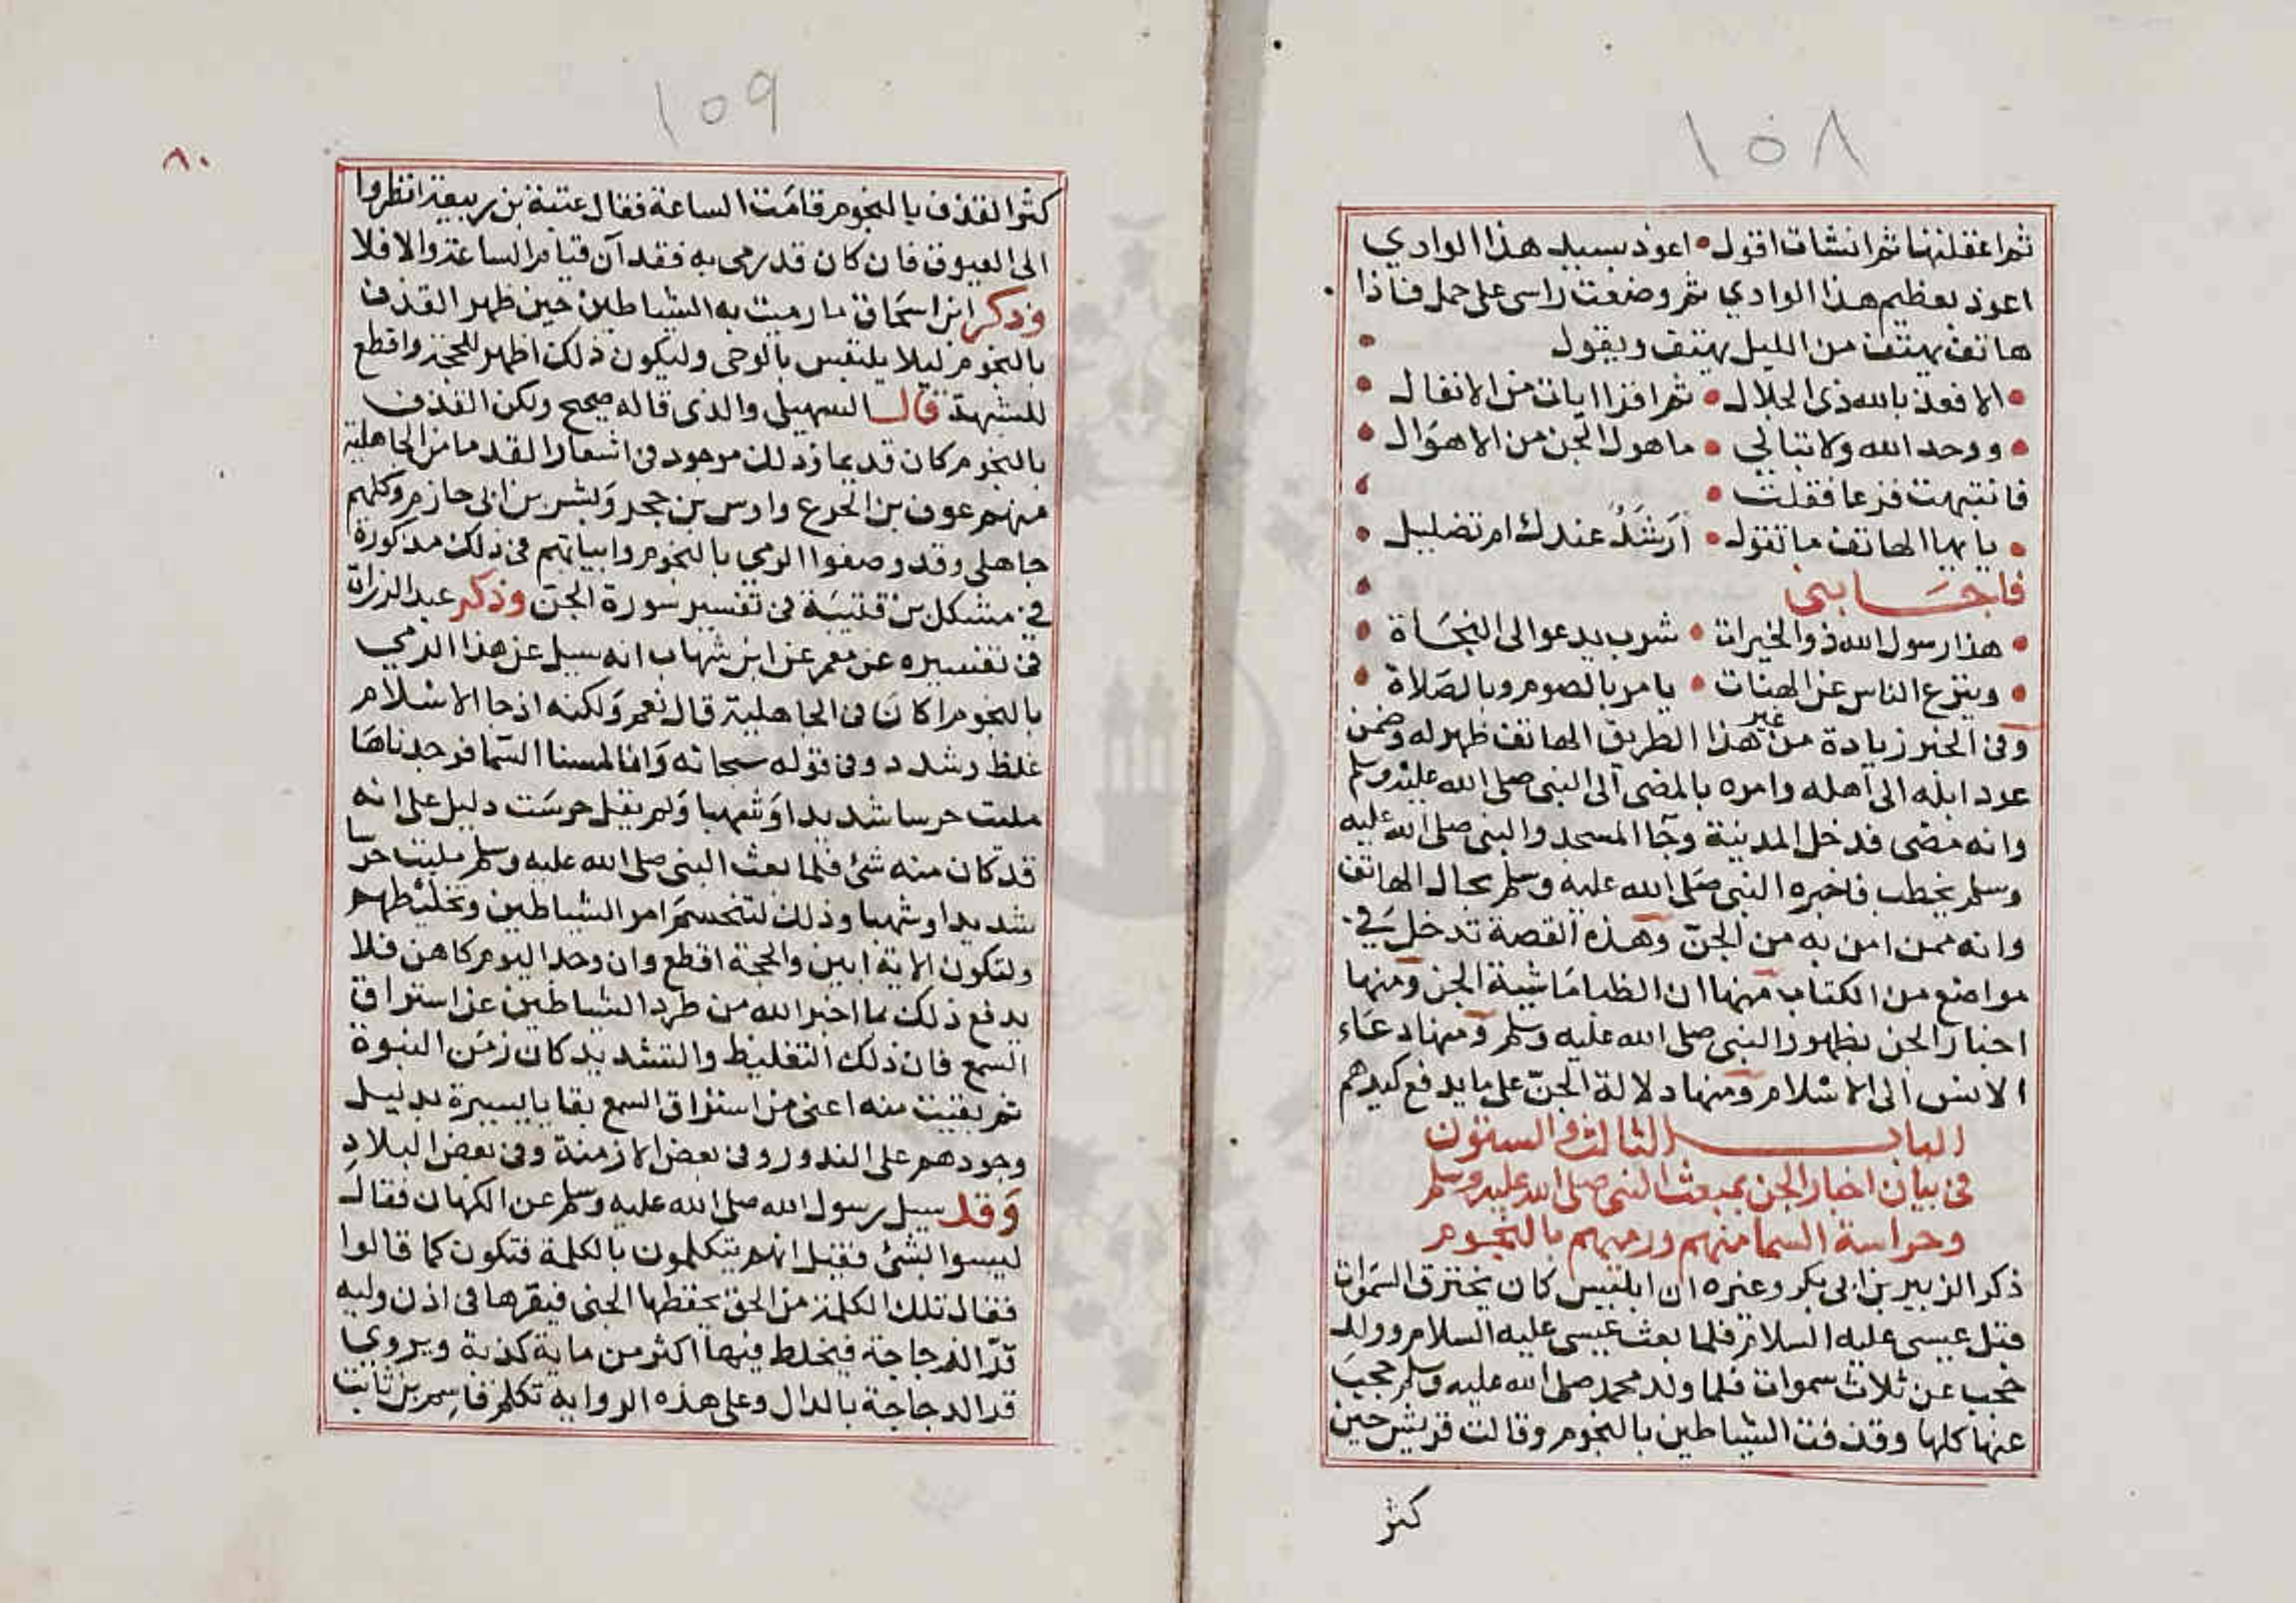 ١٥٨
ثم اعقلتها ثم انشات اقول • اعوذ بسيد هذا الوادي
اعوذ بعظيم هذا الوادي ثم وضعت راسى على جمل فاذا
هاتف يهتف من الليل يهتف ويقول •
• الا فعذ بالله ذى الجلال • ثم اقرا ايات من الانفال •
• ووحد الله ولا تبالي • ما هول الجن من الاهوال •
فانتبهت فزعا فقلت •
• يا يها الهاتف ما تقول • ارشد عندك ام تضليل •
فاجابنى •
• هذا رسول الله ذو الخيرات • شرب يدعو الى النجاة •
• وينزع الناس عن الهنات • يامر بالصوم وبالصلاة •
وفى الخبر زيادة من غير هذا الطريق الهاتف ظهر له وضمن
عود ابله الى اهله وامره بالمضى الى النبى صلى الله عليه وسلم
وانه مضى فدخل المدينة وجا المسجد والنبى صلى الله عليه
وسلم يخطب فاخبره النبى صلى الله عليه وسلم بحال الهاتف
وانه ممن امن به من الجن وهذه القصة تدخل في
مواضع من الكتاب منها ان الظبا ماشية الجن ومنها
اخبار الجن بظهور النبى صلى الله عليه وسلم ومنها دعاء
الانس الى الاسلام ومنها دلالة الجن على ما يدفع كيدهم
الباب الثالث والستون
فى بيان اخبار الجن بمبعث النبى صلى الله عليه وسلم
وحراسة السما منهم ورميهم بالنجوم
ذكر الزبير بن ابى بكر وغيره ان ابليس كان يخترق السموات
قبل عيسى عليه السلام فلما بعث عيسى عليه السلام وولد
حجب عن ثلاث سموات فلما ولد محمد صلى الله عليه وسلم حجب
عنها كلها وقذفت الشياطين بالنجوم وقالت قريش حين
كثر
١٥٩
٨٠
كثر القذف بالنجوم قامت الساعة فقال عتبة بن ربيعة انظروا
الى العيوق فان كان قد رمى به فقد آن قيام الساعة والا فلا
وذكر ابن اسحاق ما رميت به الشياطين حين ظهر القذف
بالنجوم ليلا يلتبس بالوحى وليكون ذلك اظهر للحجة واقطع
للشبهة قال السهيلى والذى قاله صحيح ولكن القذف
بالنجوم كان قديما وذلك موجود فى اشعار القدما من الجاهلية
منهم عوف بن الخرع واوس بن حجر وبشر بن ابى حازم وكلهم
جاهلى وقد وصفوا الرمي بالنجوم وابياتهم فى ذلك مذكورة
فى مشكل بن قتيبة فى تفسير سورة الجن وذكر عبد الرزاق
فى تفسيره عن معمر عن ابن شهاب انه سيل عن هذا الرمي
بالنجوم اكان فى الجاهلية قال نعم ولكنه اذ جا الاسلام
غلظ وشدد وفى قوله سبحانه وانا لمسنا السما فوجدناها
ملئت حرسا شديدا وشهبا ولم يقل حرست دليل على انه
قد كان منه شئ فلما بعث النبى صلى الله عليه وسلم ملئت حرسا
شديدا وشهبا وذلك لتنحسم امر الشياطين وتخليطهم
ولتكون الاية ابين والحجة اقطع وان وجد اليوم كاهن فلا
يدفع ذلك بما اخبر الله من طرد الشياطين عن استراق
السمع فان ذلك التغليظ والتشديد كان زمن النبوة
ثم بقيت منه اعنى من استراق السمع بقايا يسيرة بدليل
وجودهم على الندور وفى بعض الازمنة وفى بعض البلاد
وقد سيل رسول الله صلى الله عليه وسلم عن الكهان فقال
ليسوا بشئ فقيل انهم يتكلمون بالكلمة فتكون كما قالوا
فقال تلك الكلمة من الجن يحفظها الجنى فيقرها فى اذن وليه
قر الزجاجة فيخلط فيها اكثر من ماية كذبة ويروى
قر الدجاجة بالدال وعلى هذه الرواية تكلم قاسم بن ثابت